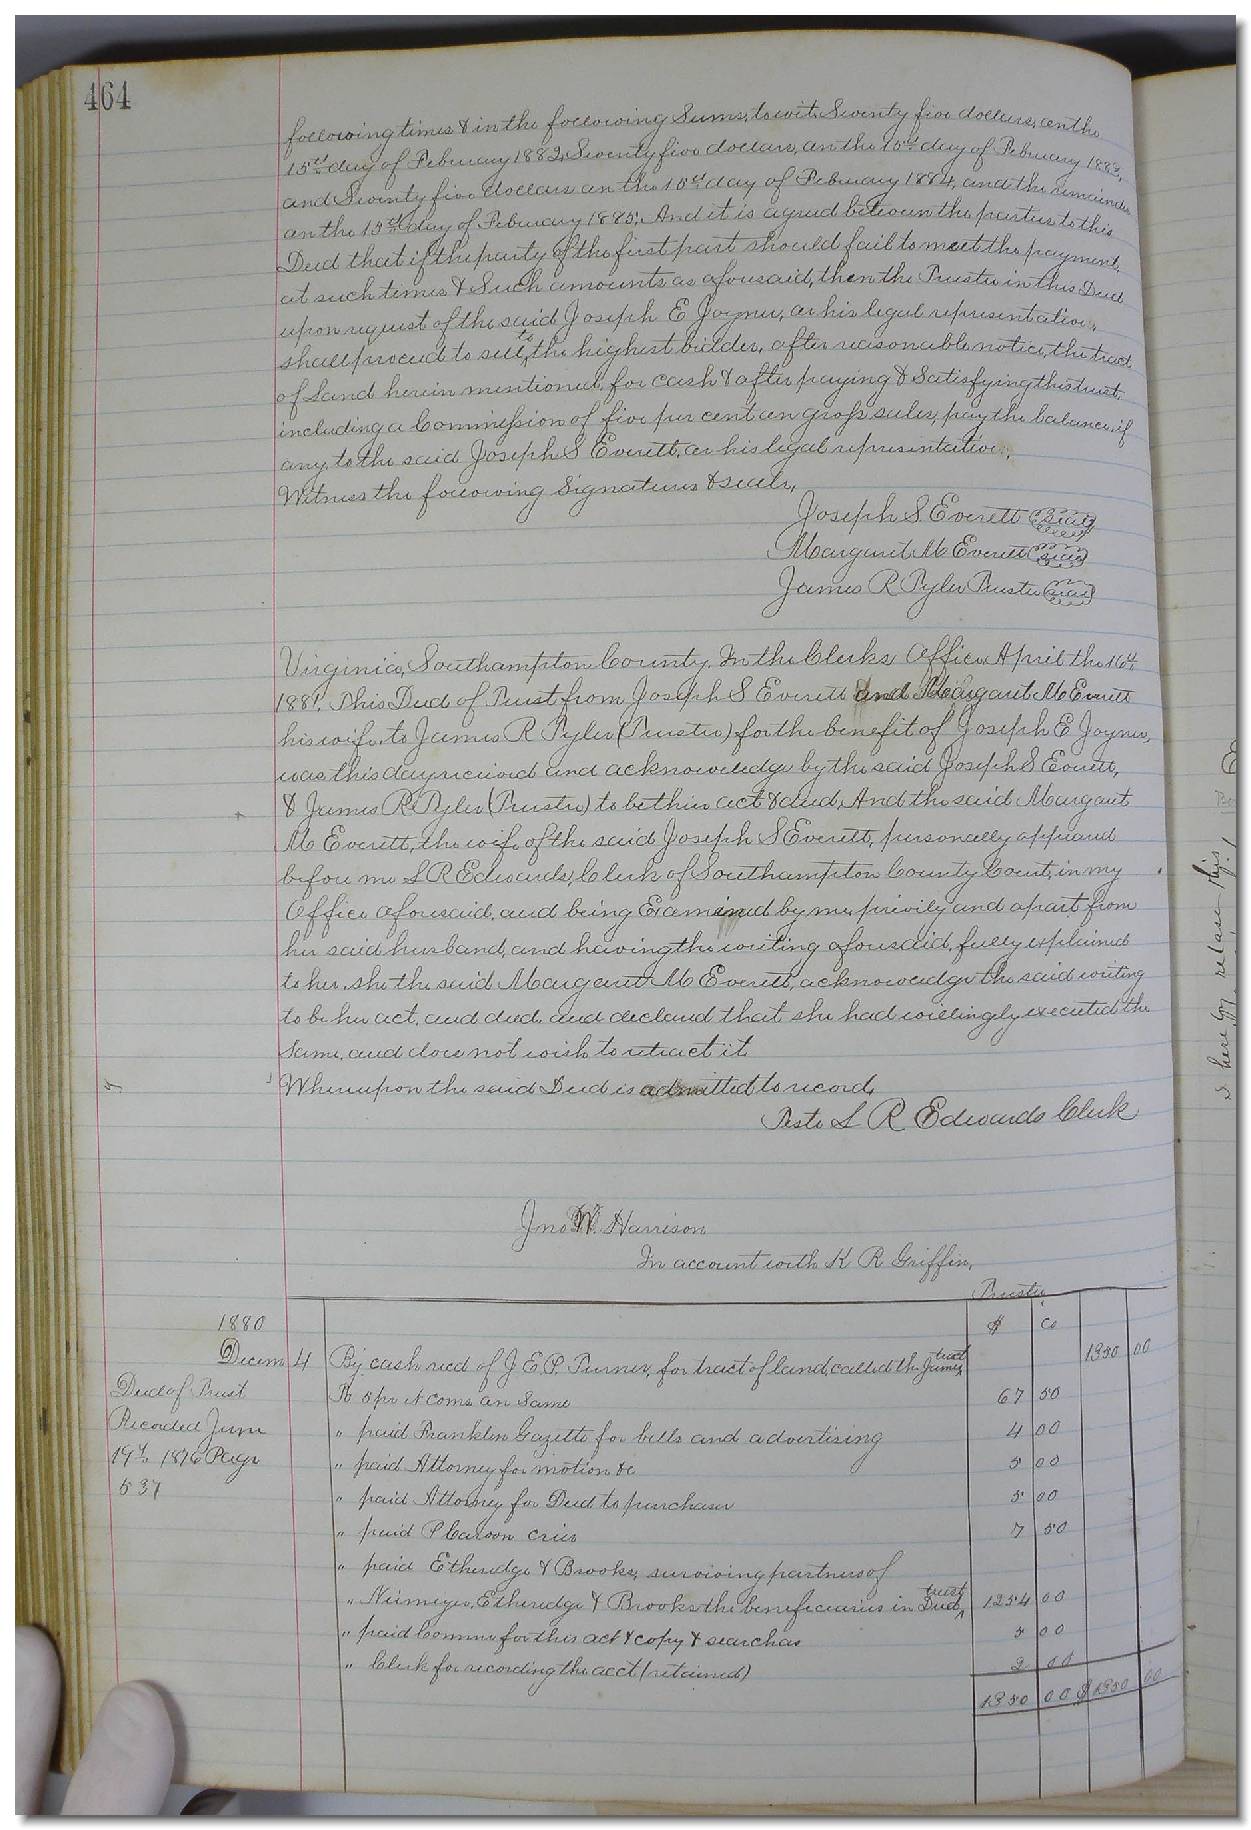 464
following times & in the following Sums, to wit: Seventy five dollars, on the
15th day of Feburary 1882, Seventy five dollars, on the 15th day of Feburary 1883,
and Seventy five dollars on the 15th day of Feburary 1884, and the remainder
on the 15th day of Feburary 1885, And it is agreed between the parties to this
Deed that if the party of the first part should fail to meet the payment,
at such times & Such amounts as aforesaid, then the Trustee in this Deed
upon request of the said Joseph E Joyner, or his legal representative,
shall proceed to sell to the highest bidder, after reasonable notice, the tract
of Land herein mentioned, for cash & after paying & Satisfying this trust,
including a Commission of five per cent on gross sales, pay the balance, if
any, to the said Joseph S Everett, or his legal representative,
Witness the following Signatures & seals,
Joseph S Everett Seal
Margaret M Everett Seal
James R Tyler Trustee Seal
Virginia, Southampton County In the Clerks Office April the 16th
1881, This Deed of Trust from Joseph S Everett and Margaret M Everett
his wife, to James R Tyler (Trustee) for the benefit of Joseph E Joyner,
was this day received and acknowledge by the said Joseph S Everett,
& James R Tyler (Trustee) to be their act & deed, And the said Margaret
M Everett, the wife of the said Joseph S Everett, personally appeared
before me L R Edwards, Clerk of Southampton County Court, in my
Office aforesaid, and being Examined by me, privily and apart from
her said husband, and having the writing aforesaid, fully explained
to her, she the said Margaret M Everett, acknowledge the said writing
to be her act, and deed, and declared that she had willingly executed the
same, and does not wish to retract it
Whereupon the said Deed is admitted to record,
Teste L R Edwards Clerk
I hereby release this
Jno W. Harrison
In account with K R Griffin,
Trustee
1880
$ Cs
Decem 4 By cash recd of J. E. P. Turner, for tract of land, called the James tract 1350 00
Deed of Trust
To 5 pr ct coms on Same 67 50
Recorded June
" paid Franklin Gazette for bills and advertising 4 00
19th 1876 Page
" paid Attorney for motion &c 5 00
537
" paid Attorney for Deed to purchaser 5 00
" paid P Carson crier 7 50
" paid Etheridge & Brooks, surviving partners of
" Niemeyer, Etheridge & Brooks the beneficiaries in trust Deed, 1254 00
" paid Commr for this act & copy & searches 5 00
" Clerk for recording the acct (retained) 2 00
1350 00 $1350 00